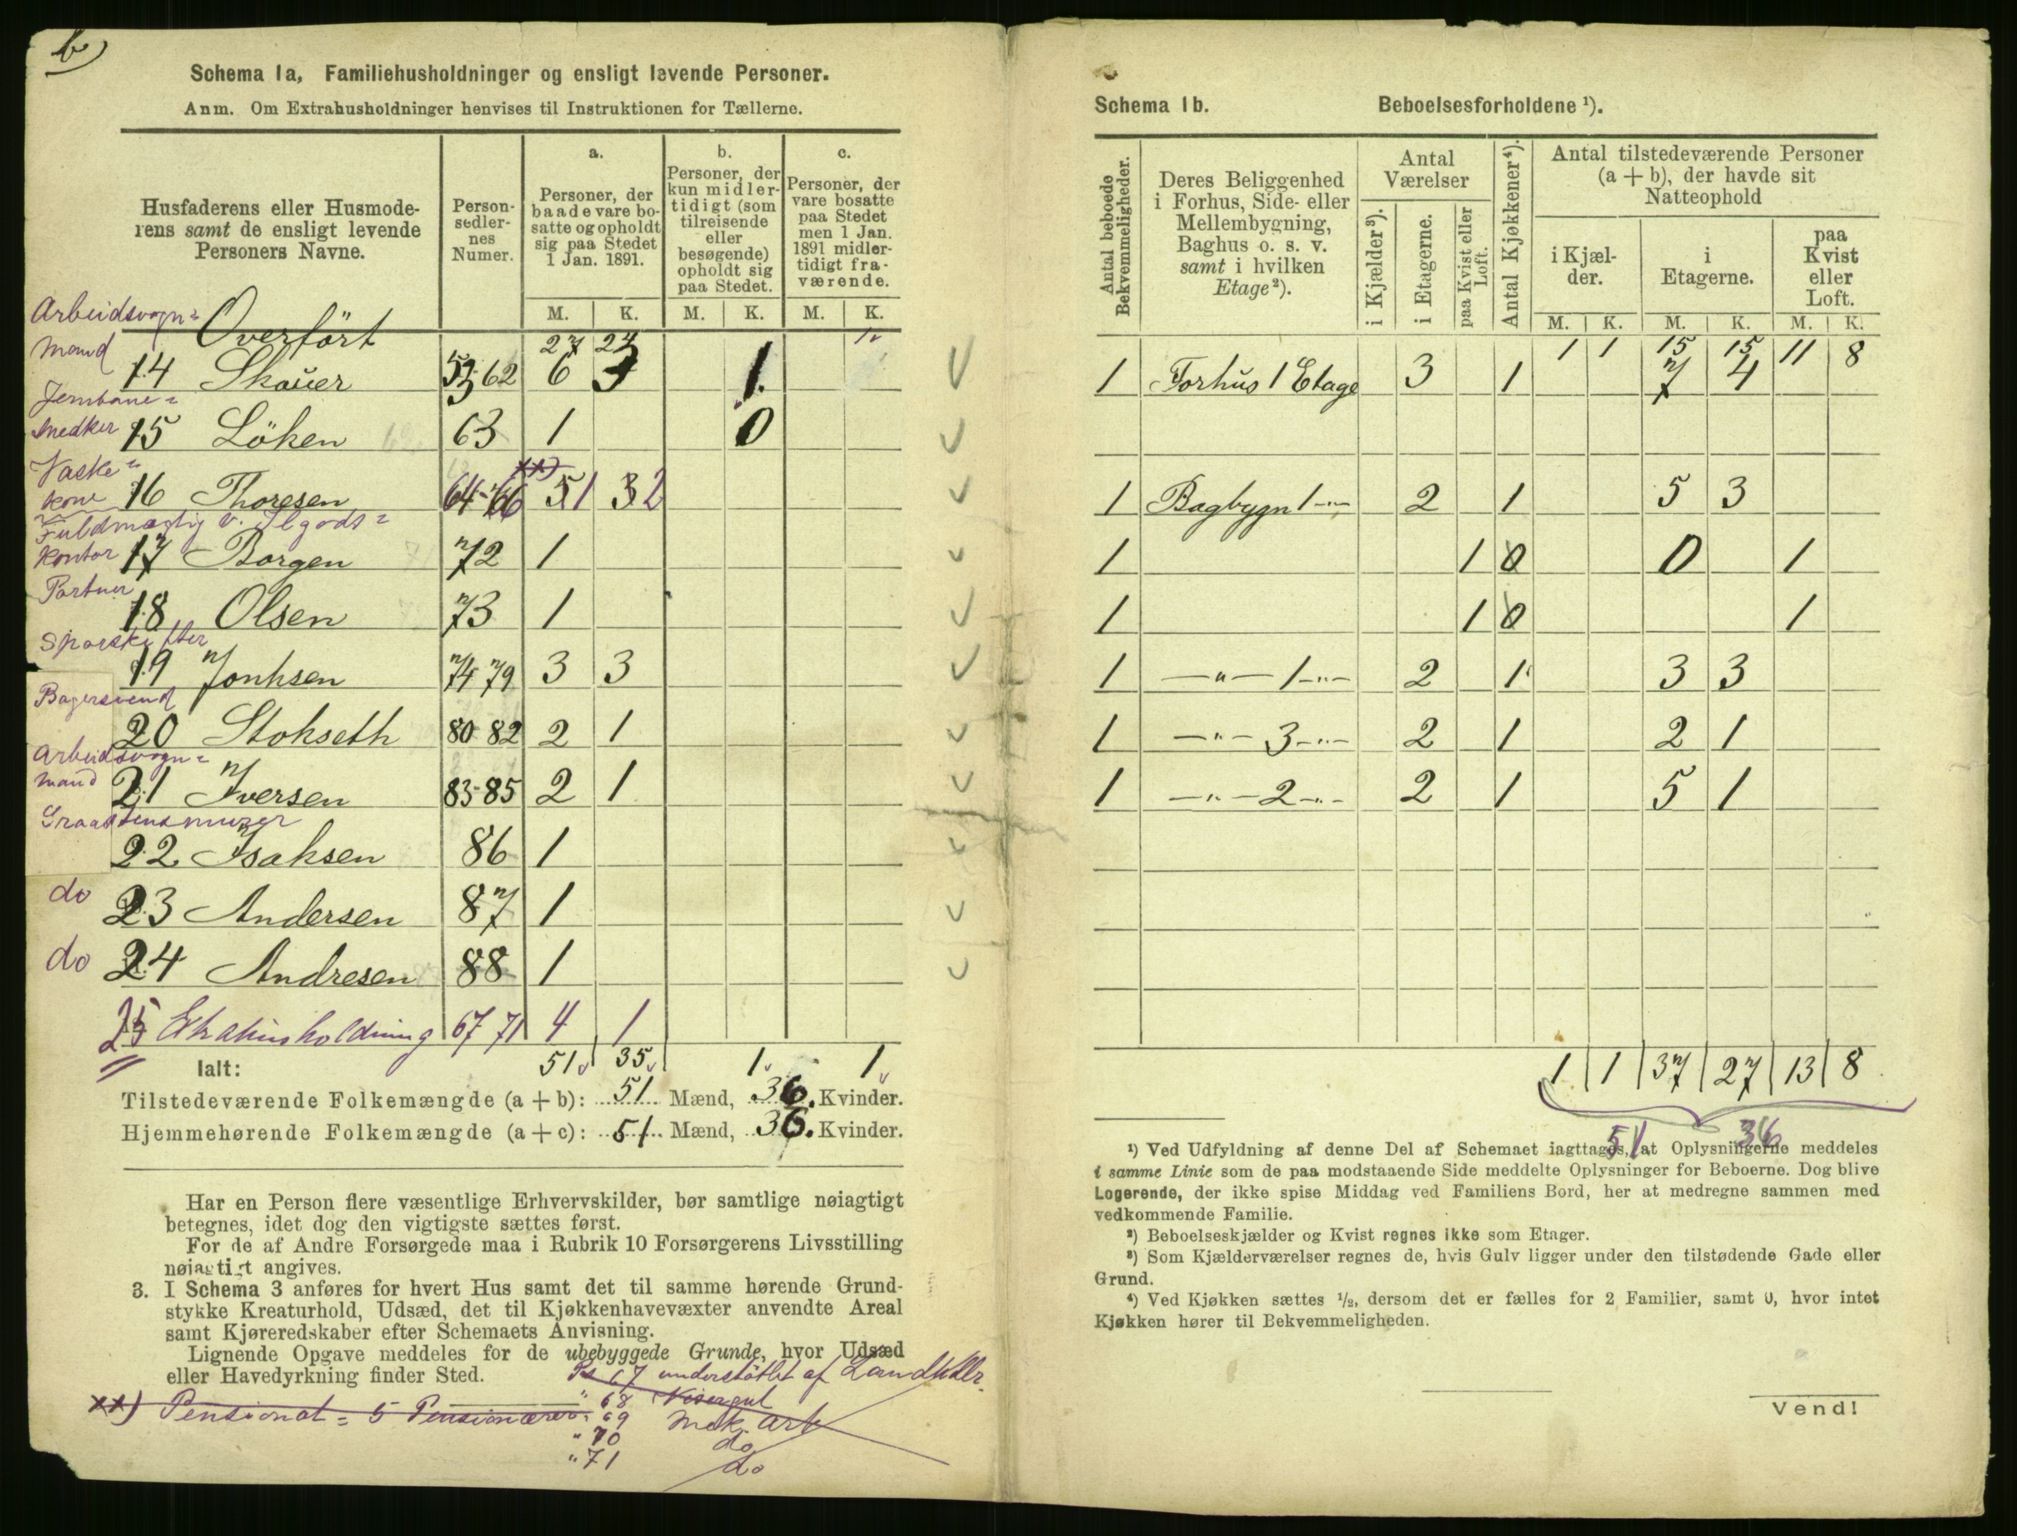 b)
Schema 1a, Familiehusholdninger og ensligt levende Personer.
Anm. Om Extrahusholdninger henvises til Instruktionen for Tællerne.
Husfaderens eller Husmoderens samt de ensligt levende Personers Navne.
Person-sedler-nes Numer.
a. Personer, der baade vare bosatte og opholdt sig paa Stedet 1 Jan. 1891.
b. Personer, der kun midlertidigt (som tilreisende eller besøgende) opholdt sig paa Stedet.
c. Personer, der vare bosatte paa Stedet men 1 Jan. 1891 midlertidigt fraværende.
M. K. M. K. M. K.
Overført 27 23 1
Arbeidsvogn=mand 14 Skauer 53 62 6 3 1
Jernbane=snedker 15 Löken 63 1 0
Vaske=kone 16 Thoresen 64-66 xx) 51 32
Fuldmægtig v. Ilgods=kontor 17 Borgen 72 1
Portner 18 Olsen 73 1
Sporskifter 19 Jonhsen 74 79 3 3
Bagersvend 20 Stokseth 80 82 2 1
Arbeidsvogn=mand 21 Iversen 83-85 2 1
Graastensmurer 22 Isaksen 86 1
do 23 Andersen 87 1
do 24 Andresen 88 1
25 Extrahusholdning 67 71 4 1
Ialt: 51 35 1 1
Tilstedeværende Folkemængde (a + b): 51 Mænd, 36. Kvinder.
Hjemmehørende Folkemængde (a + c): 51 Mænd, 36. Kvinder.
Har en Person flere væsentlige Erhvervskilder, bør samtlige nøiagtigt
betegnes, idet dog den vigtigste sættes først.
For de af Andre Forsørgede maa i Rubrik 10 Forsørgerens Livsstilling
nøiagtigt angives.
3. I Schema 3 anføres for hvert Hus samt det til samme hørende Grund-
stykke Kreaturhold, Udsæd, det til Kjøkkenhavevæxter anvendte Areal
samt Kjøreredskaber efter Schemaets Anvisning.
Lignende Opgave meddeles for de ubebyggede Grunde, hvor Udsæd
eller Havedyrkning finder Sted.
Ps 67 understöttet af
" 68 Visergut
xx) Pensionat = 5 Pensionærer: 69 Mek. arb
" 70 do
" 71 do
Schema 1b. Beboelsesforholdene ¹).
Antal beboede Bekvemmeligheder.
Deres Beliggenhed i Forhus, Side- eller Mellembygning, Baghus o. s. v. samt i hvilken Etage²).
Antal Værelser
i Kjælder³).
i Etagerne.
paa Kvist eller Loft.
Antal Kjøkkener⁴).
Antal tilstedeværende Personer (a + b), der havde sit Natteophold
i Kjælder.
i Etagerne.
paa Kvist eller Loft.
M. K. M. K. M. K.
1 1 15 15 11 8
1 Forhus 1 Etage 3 1 7 4
1 Bagbygn 1 -"- 2 1 5 3
1 1 0 0 1
1 1 0 1
1 -"- 1 -"- 2 1 3 3
1 -"- 3 -"- 2 1 2 1
1 -"- 2 -"- 2 1 5 1
1 1 37 27 13 8
51 36
¹) Ved Udfyldning af denne Del af Schemaet iagttages, at Oplysningerne meddeles
i samme Linie som de paa modstaaende Side meddelte Oplysninger for Beboerne. Dog blive
Logerende, der ikke spise Middag ved Familiens Bord, her at medregne sammen med
vedkommende Familie.
²) Beboelseskjælder og Kvist regnes ikke som Etager.
³) Som Kjælderværelser regnes de, hvis Gulv ligger under den tilstødende Gade eller
Grund.
⁴) Ved Kjøkken sættes ½, dersom det er fælles for 2 Familier, samt 0, hvor intet
Kjøkken hører til Bekvemmeligheden.
Vend!